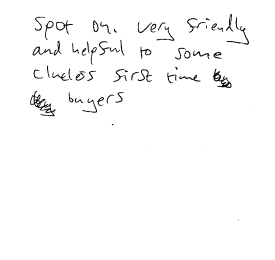 Spot on. Very friendly
and helpful to some
clueless first time
buyers